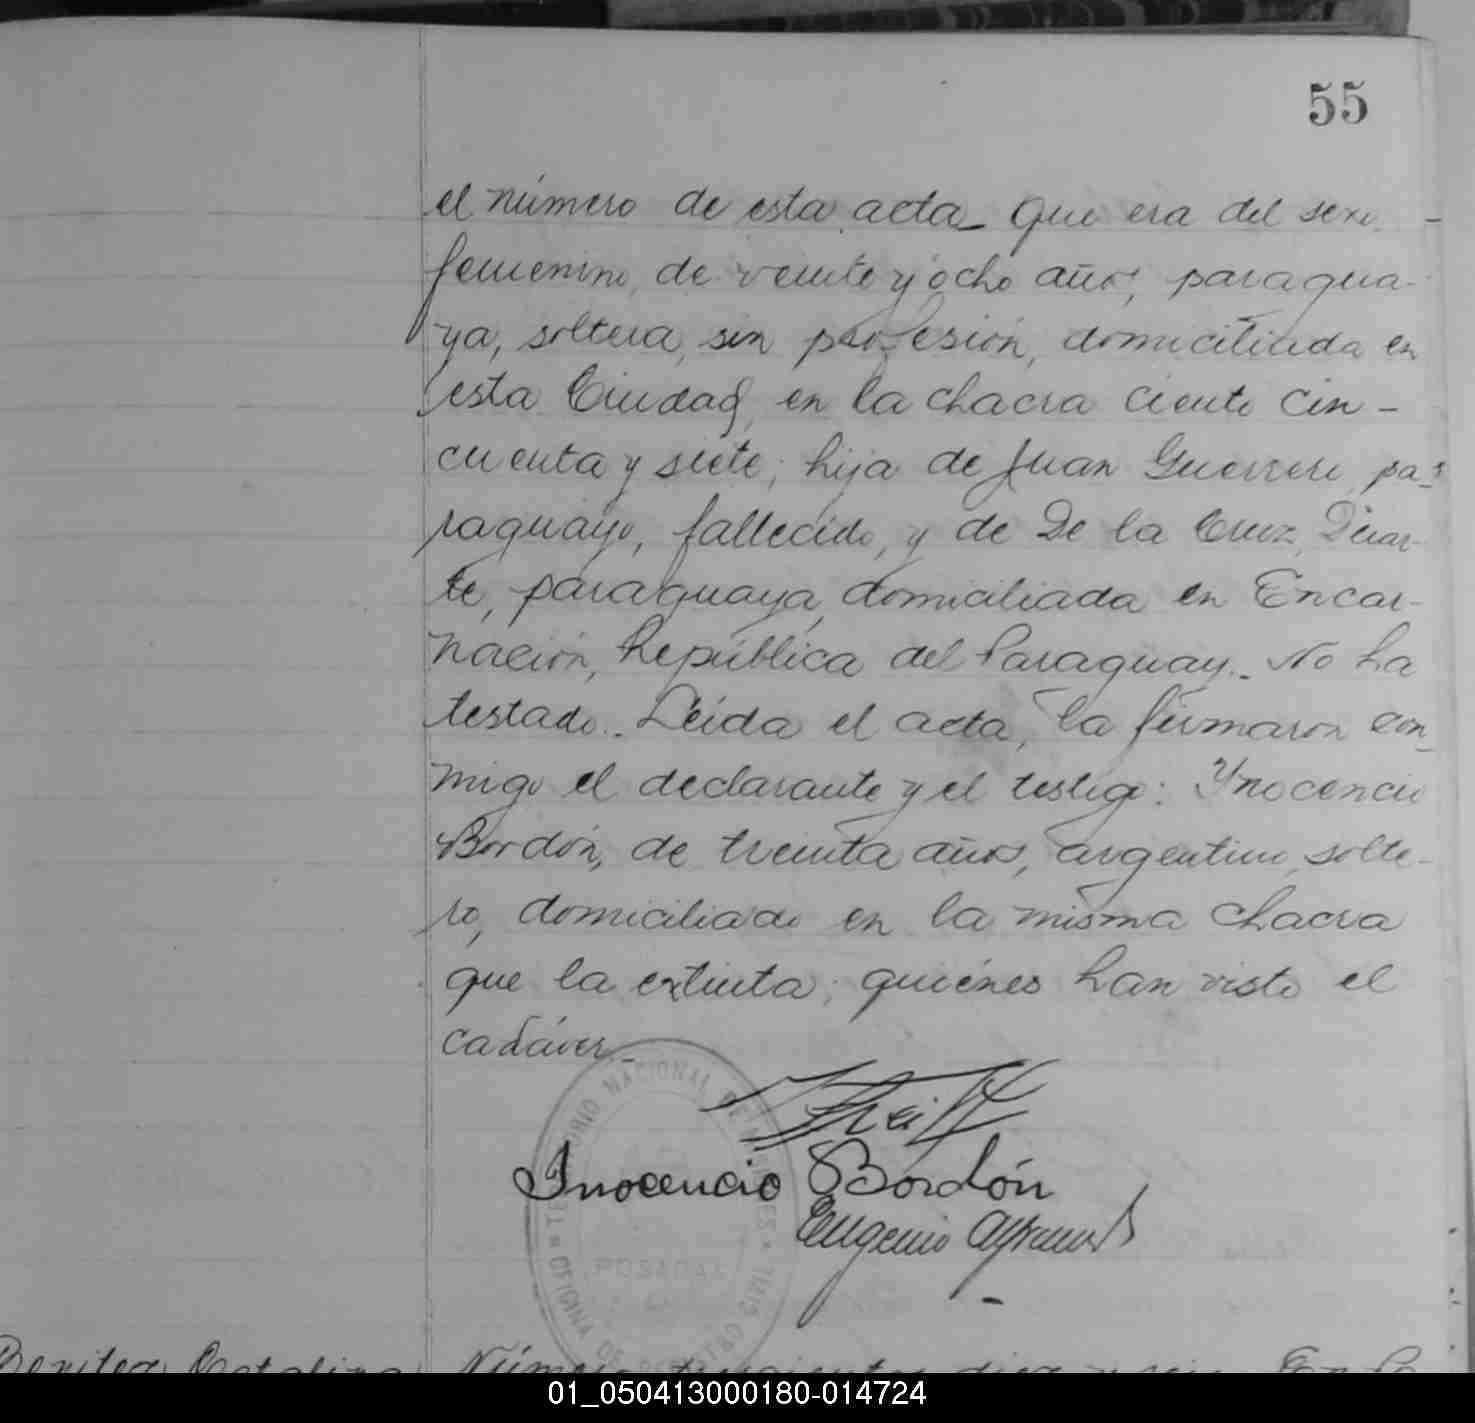 55
el número de esta acta_ Que era del sexo
femenino, de veinte y ocho años, paragua-
ya, soltera, sin profesión, domiciliada en
esta Ciudad, en la chacra ciento cin-
cuenta y siete; hija de Juan Guerrero, pa-
raguayo, fallecido, y de De la Cruz Duar-
te, paraguaya, domiciliada en Encar-
nación, República del Paraguay._ No ha
testado._ Leída el acta, la firmaron con-
migo el declarante y el testigo: Ynocencio
Bordón, de treinta años, argentino, solte-
ro, domiciliado en la misma chacra
que la extinta; quiénes han visto el
cadáver._
Inocencio Bordón
Eugenio
TERRITORIO NACIONAL DE MISIONES
POSADAS
OFICINA DE REGISTRO CIVIL
Benitez Catalina
Número trescientos diez y seis En la
01_050413000180-014724